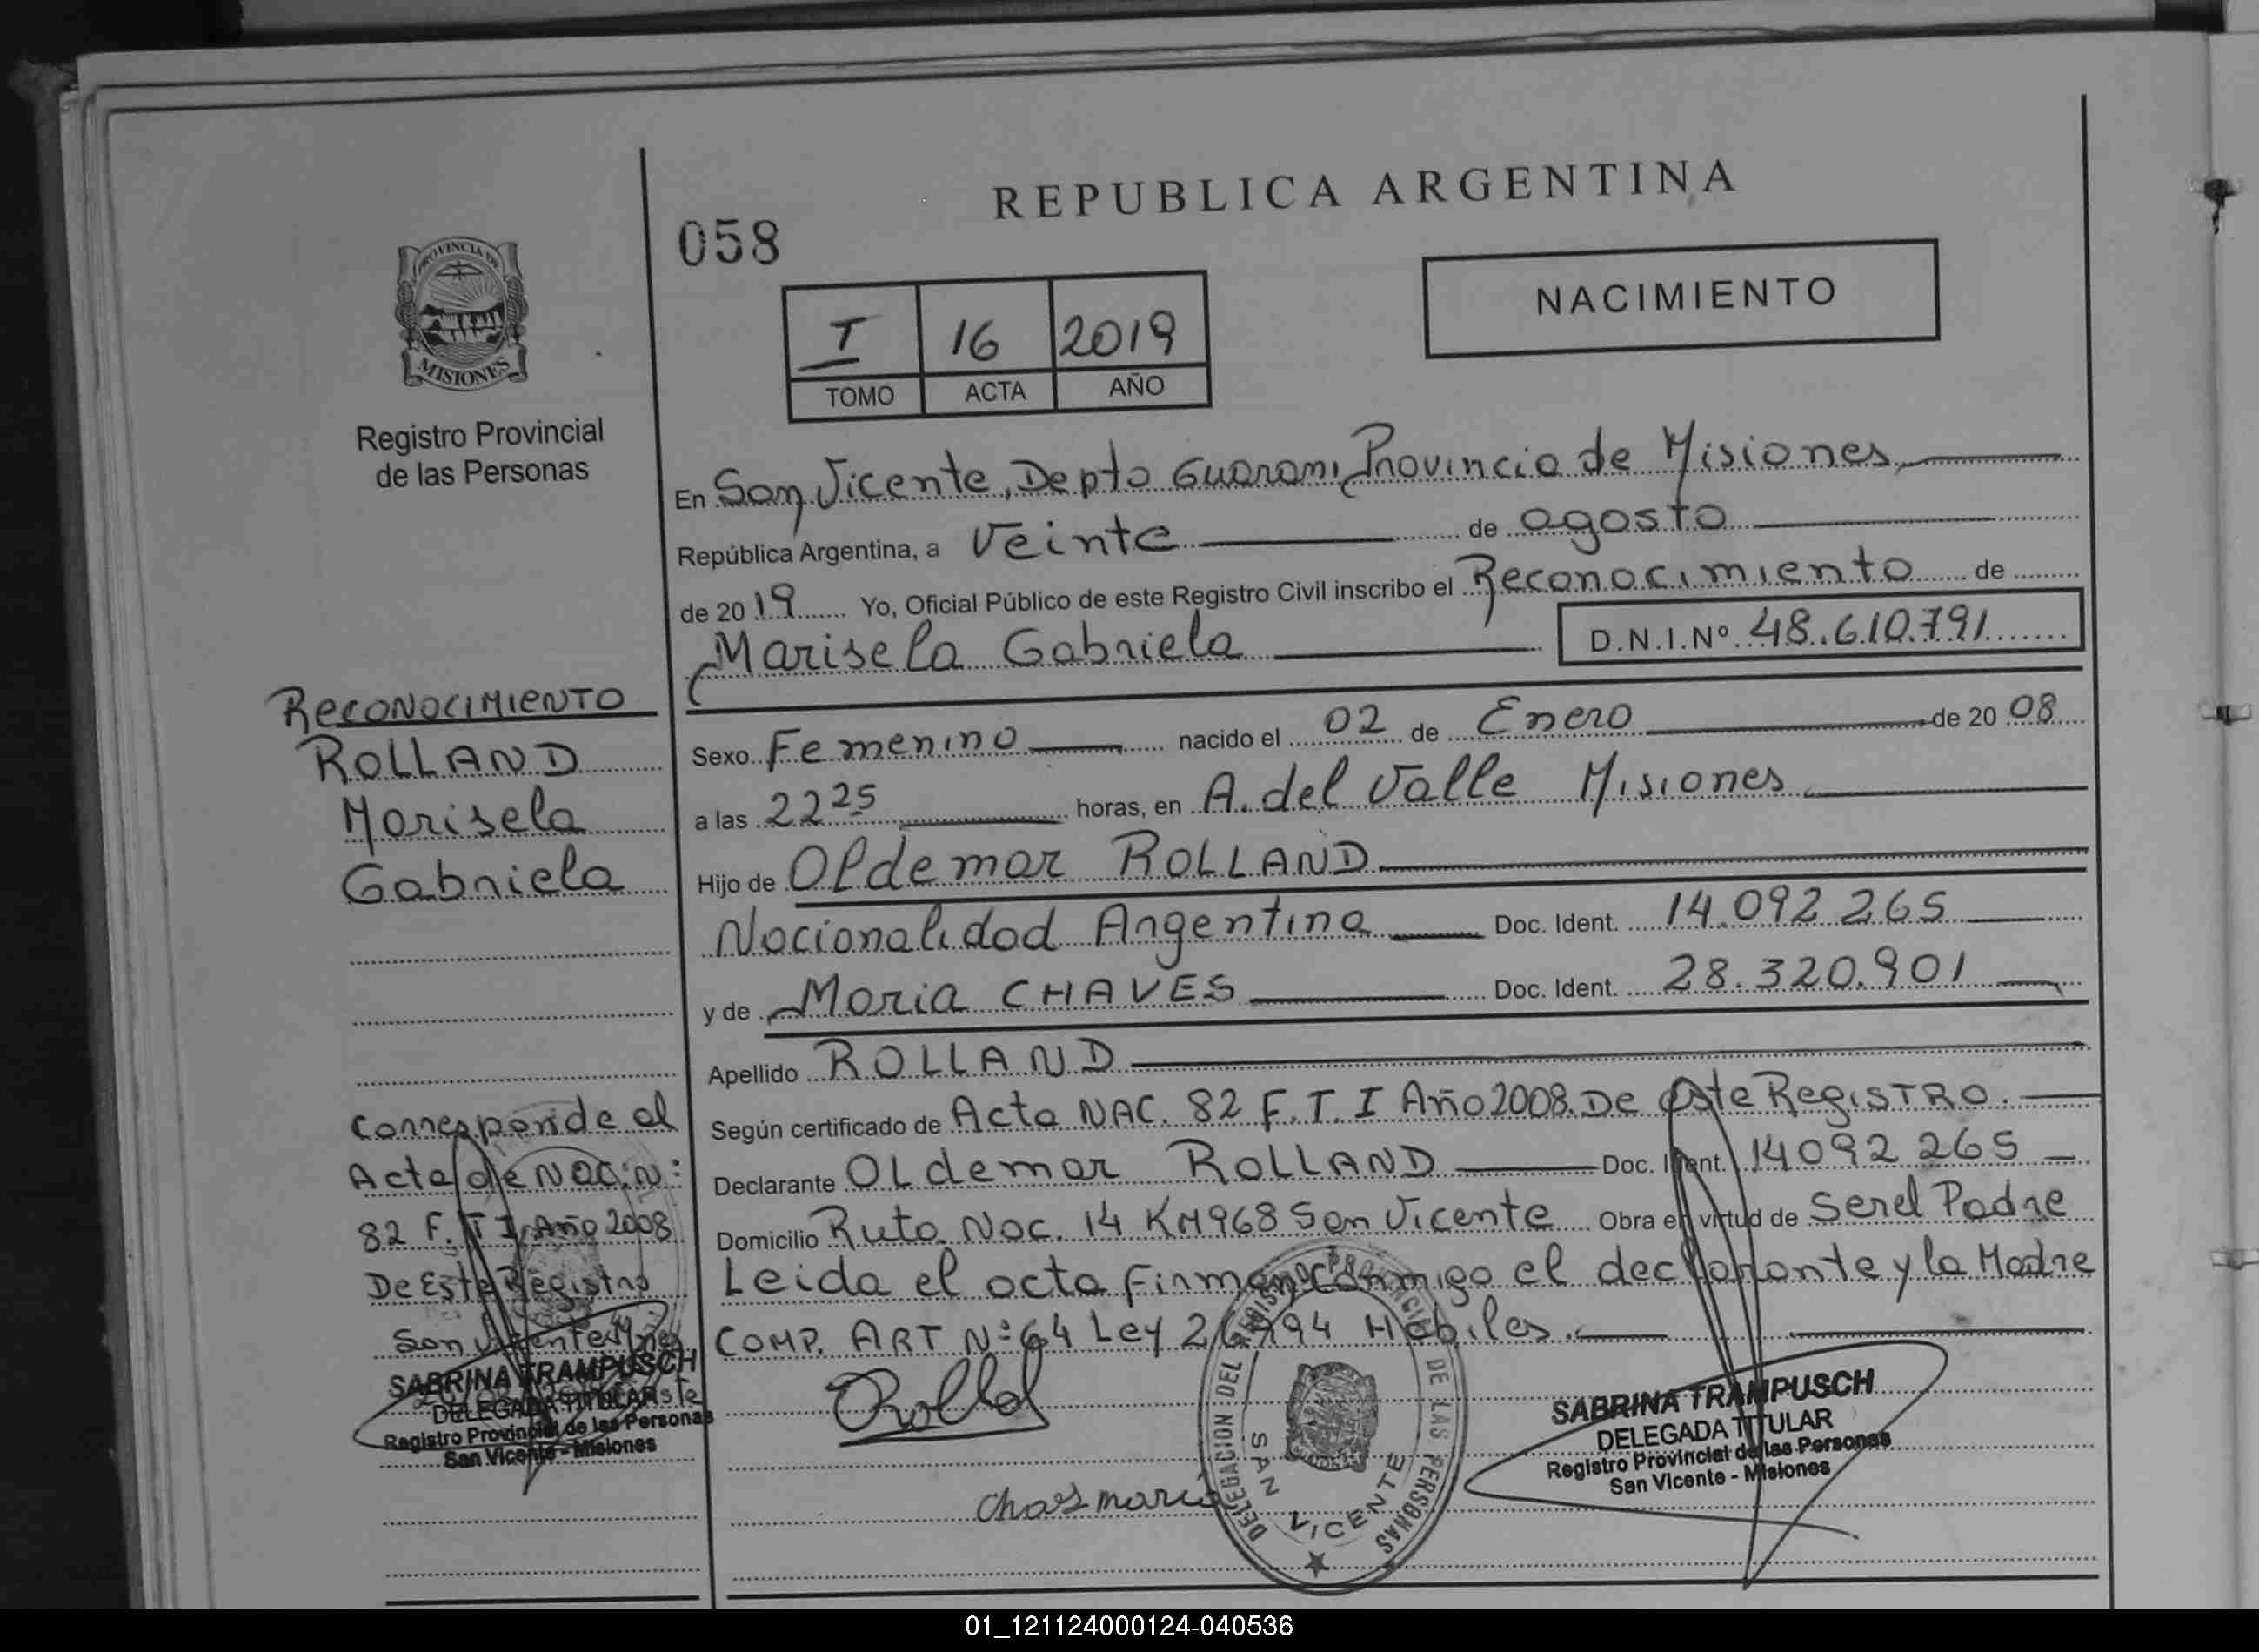 REPUBLICA ARGENTINA
058
NACIMIENTO
PROVINCIA DE
MISIONES
I 16 2019
TOMO ACTA AÑO
Registro Provincial
de las Personas
En San Vicente, Depto Guarani, Provincia de Misiones
República Argentina, a Veinte de agosto
de 2019 Yo, Oficial Público de este Registro Civil inscribo el Reconocimiento de
Marisela Gabriela D.N.I.Nº 48.610.791
Sexo Femenino nacido el 02 de Enero de 2008
a las 22 25 horas, en A. del Valle Misiones
Hijo de Oldemar ROLLAND
Nacionalidad Argentina Doc. Ident. 14.092 265
y de Maria CHAVES Doc. Ident. 28.320.901
Apellido ROLLAND
Según certificado de Acta NAC. 82 F. T. I Año 2008. De este Registro.
Declarante Oldemar ROLLAND Doc. Ident. 14092 265
Domicilio Ruta Nac. 14 KM 968 San Vicente Obra en virtud de Ser el Padre
Leida el acta firman conmigo el declarante y la Madre
COMP. ART Nº 64 Ley 26994 Habiles.
RECONOCIMIENTO
ROLLAND
Marisela
Gabriela
Corresponde al
Acta de NAC. Nº:
82 F. T I, Año 2008
De Este Registro
San Vicente Mnes
SABRINA TRAMPUSCH
DELEGADA TITULAR
Registro Provincial de las Personas
San Vicente - Misiones
Rolland
Chaves maria
DELEGACION DEL REGISTRO PROVINCIAL DE LAS PERSONAS
SAN VICENTE
SABRINA TRAMPUSCH
DELEGADA TITULAR
Registro Provincial de las Personas
San Vicente - Misiones
01_121124000124-040536